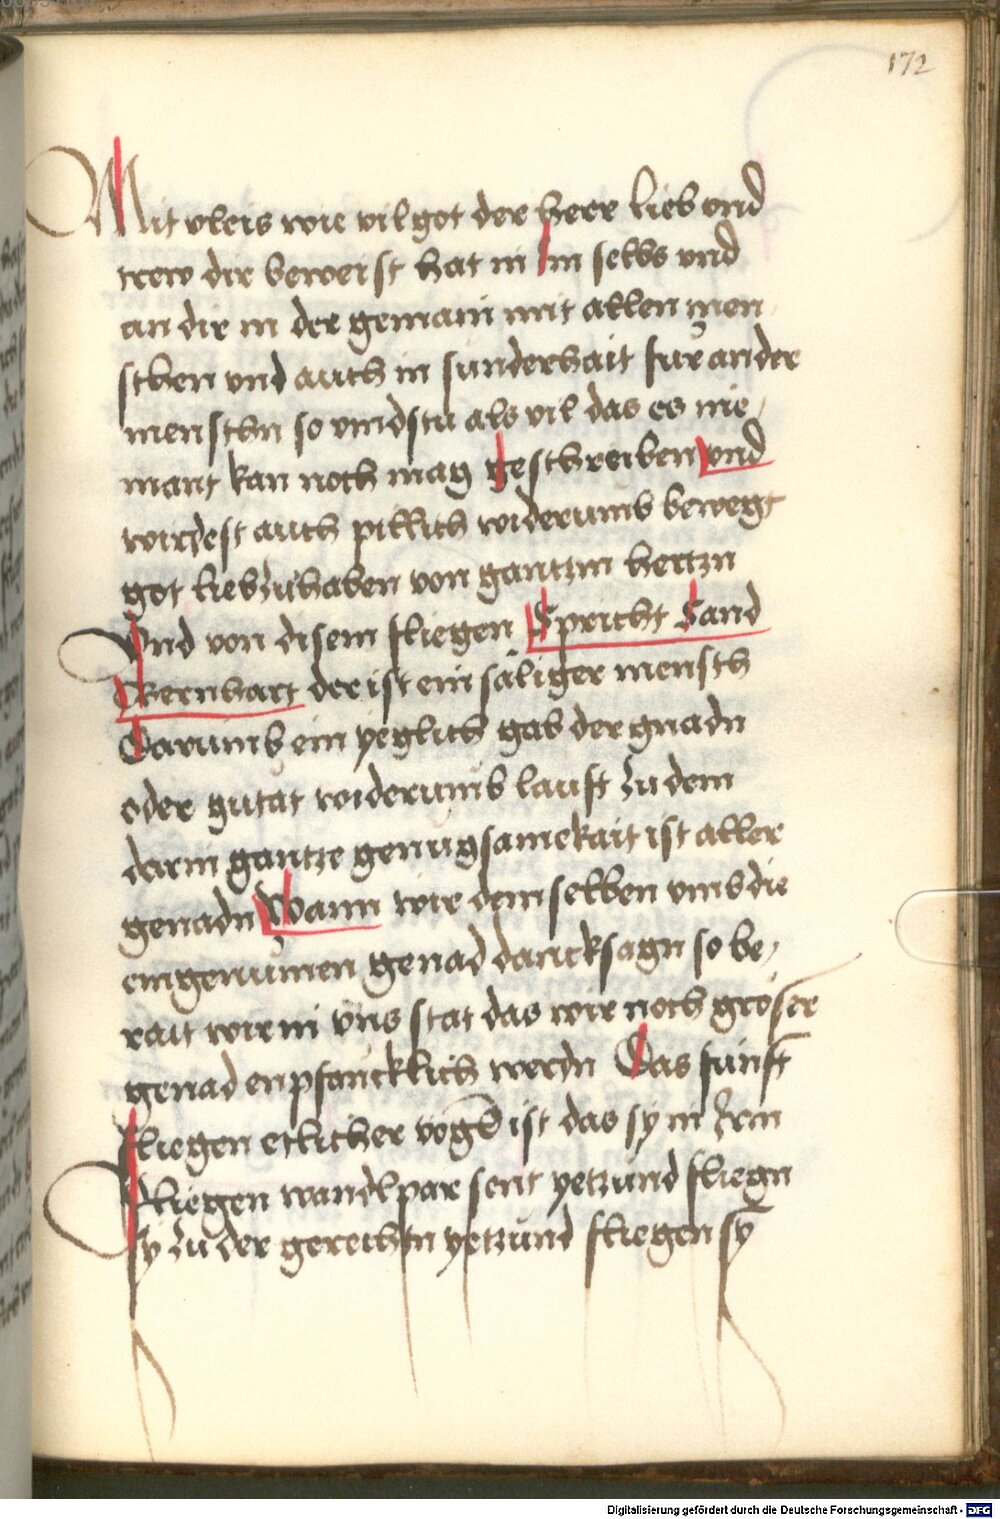 172
Mit vleis wie vil got der herr lieb vnd
trew dir beweist hat in Im selbs vnd
an dir in der gemain mit allen men
schen vnd auch in sunderhait fur ander
menschn so vindstu als vil das es nie,
mant kan noch mag geschreiben vnd
wirdest auch pillich widerumb bewegt
got lieb zuhaben von gantzm hertzn
Vnd von disem fliegen Spricht Sand
Bernhart der ist ein säliger mensch
Darumb ein yeglich gab der gnadn
oder gutat widerumb lauft zu dem
darin gantze genugsamekait ist aller
genadn Wann wir dem selben vmb die
eingenumen genad dancksagn so be,
rait wir in vns stat das wir noch gröser
genad enpfäncklich werdn Das funft
fliegen etlicher vogl ist das sy in Irm
fliegen wandlpar sent yetzund fliegn
sy zu der gerechtn yetzund fliegen sy
Digitalisierung gefördert durch die Deutsche Forschungsgemeinschaft - DFG